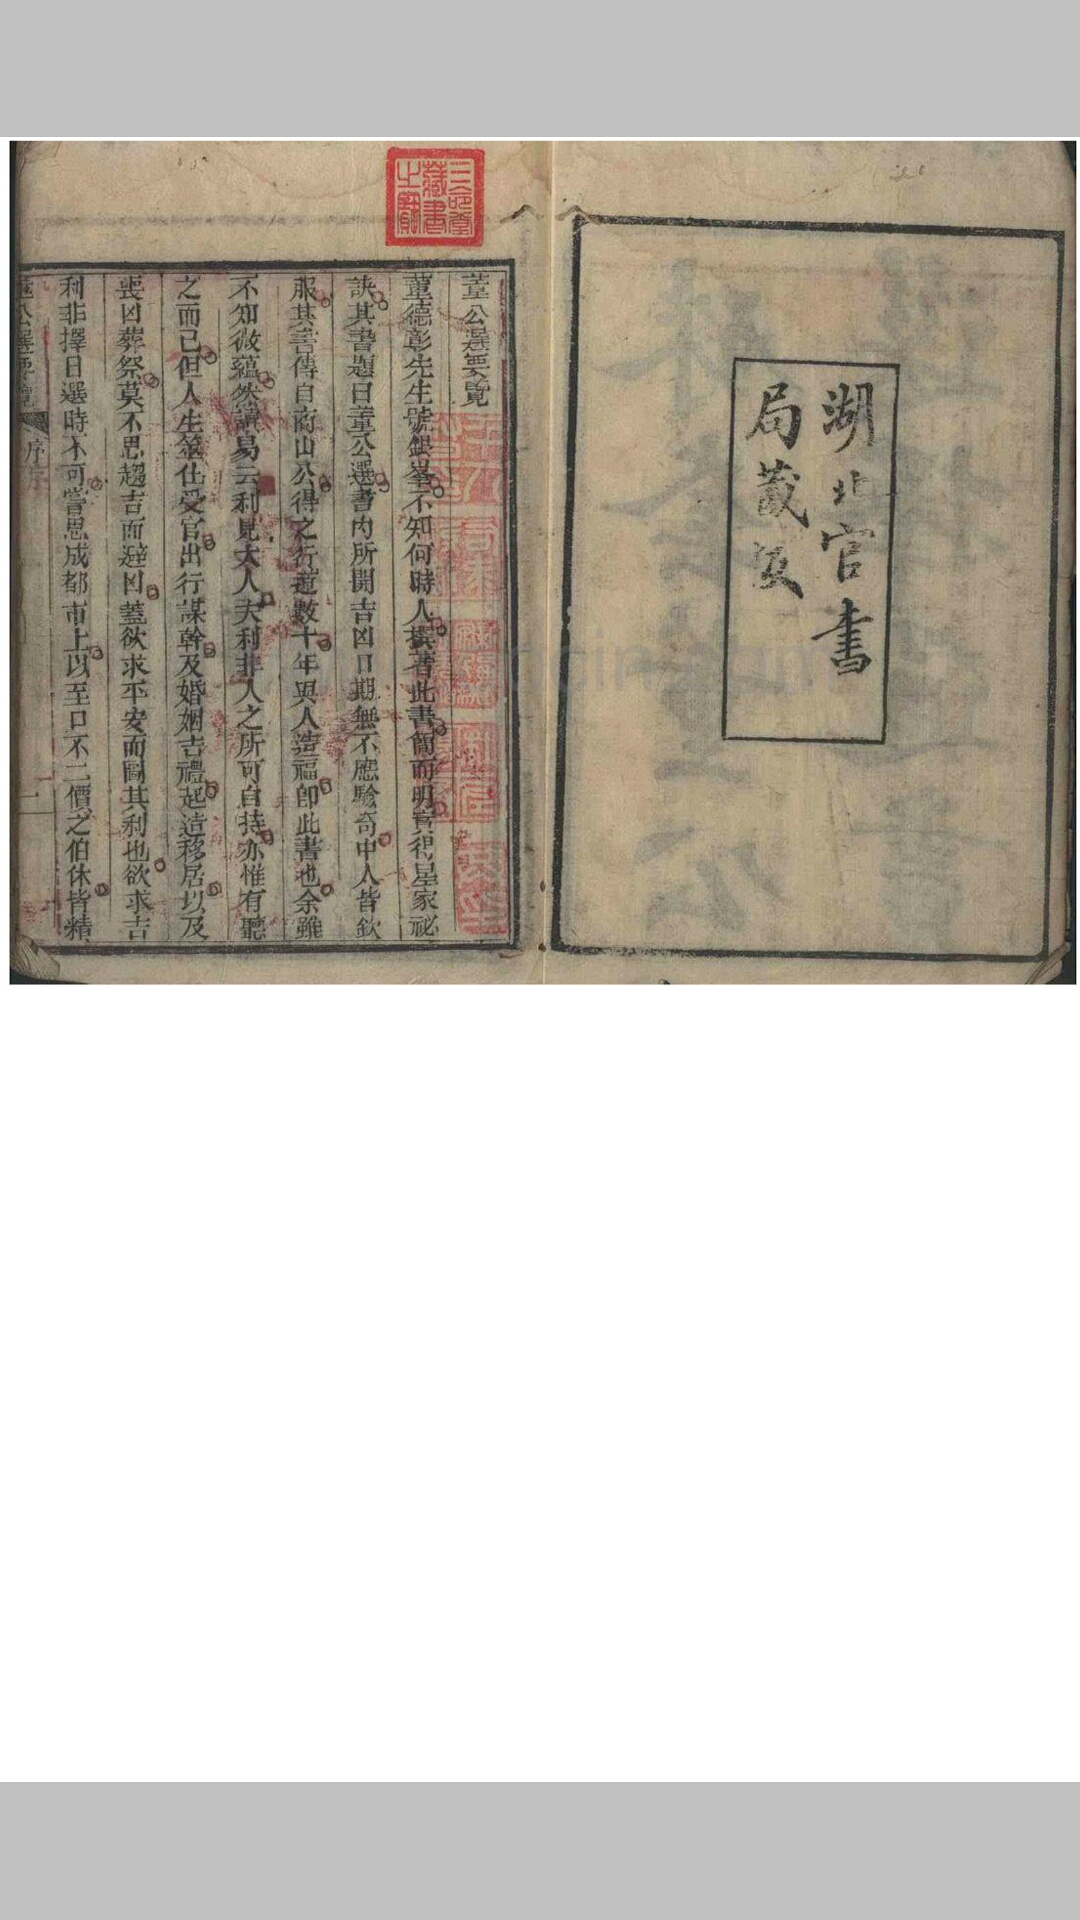 湖北官書
局藏板
三命堂
藏書
之寶
董公選要覽
董德彰先生號銀峯不知何時人撰著此書簡而明實得星家祕
訣其書題曰董公選書內所開吉凶日期無不應驗奇中人皆欽
服其書傳自商山公得之行道數十年與人造福卽此書也余雖
不知微蘊然讀易云利見大人夫利非人之所可自持亦惟有聽
之而已但人生筮仕受官出行謀幹及婚姻吉禮起造移居以及
喪凶葬祭莫不思趨吉而避凶蓋欲求平安而圖其利也欲求吉
利非擇日選時不可嘗思成都市上以至口不二價之伯休皆精
董公選要覽 序
一